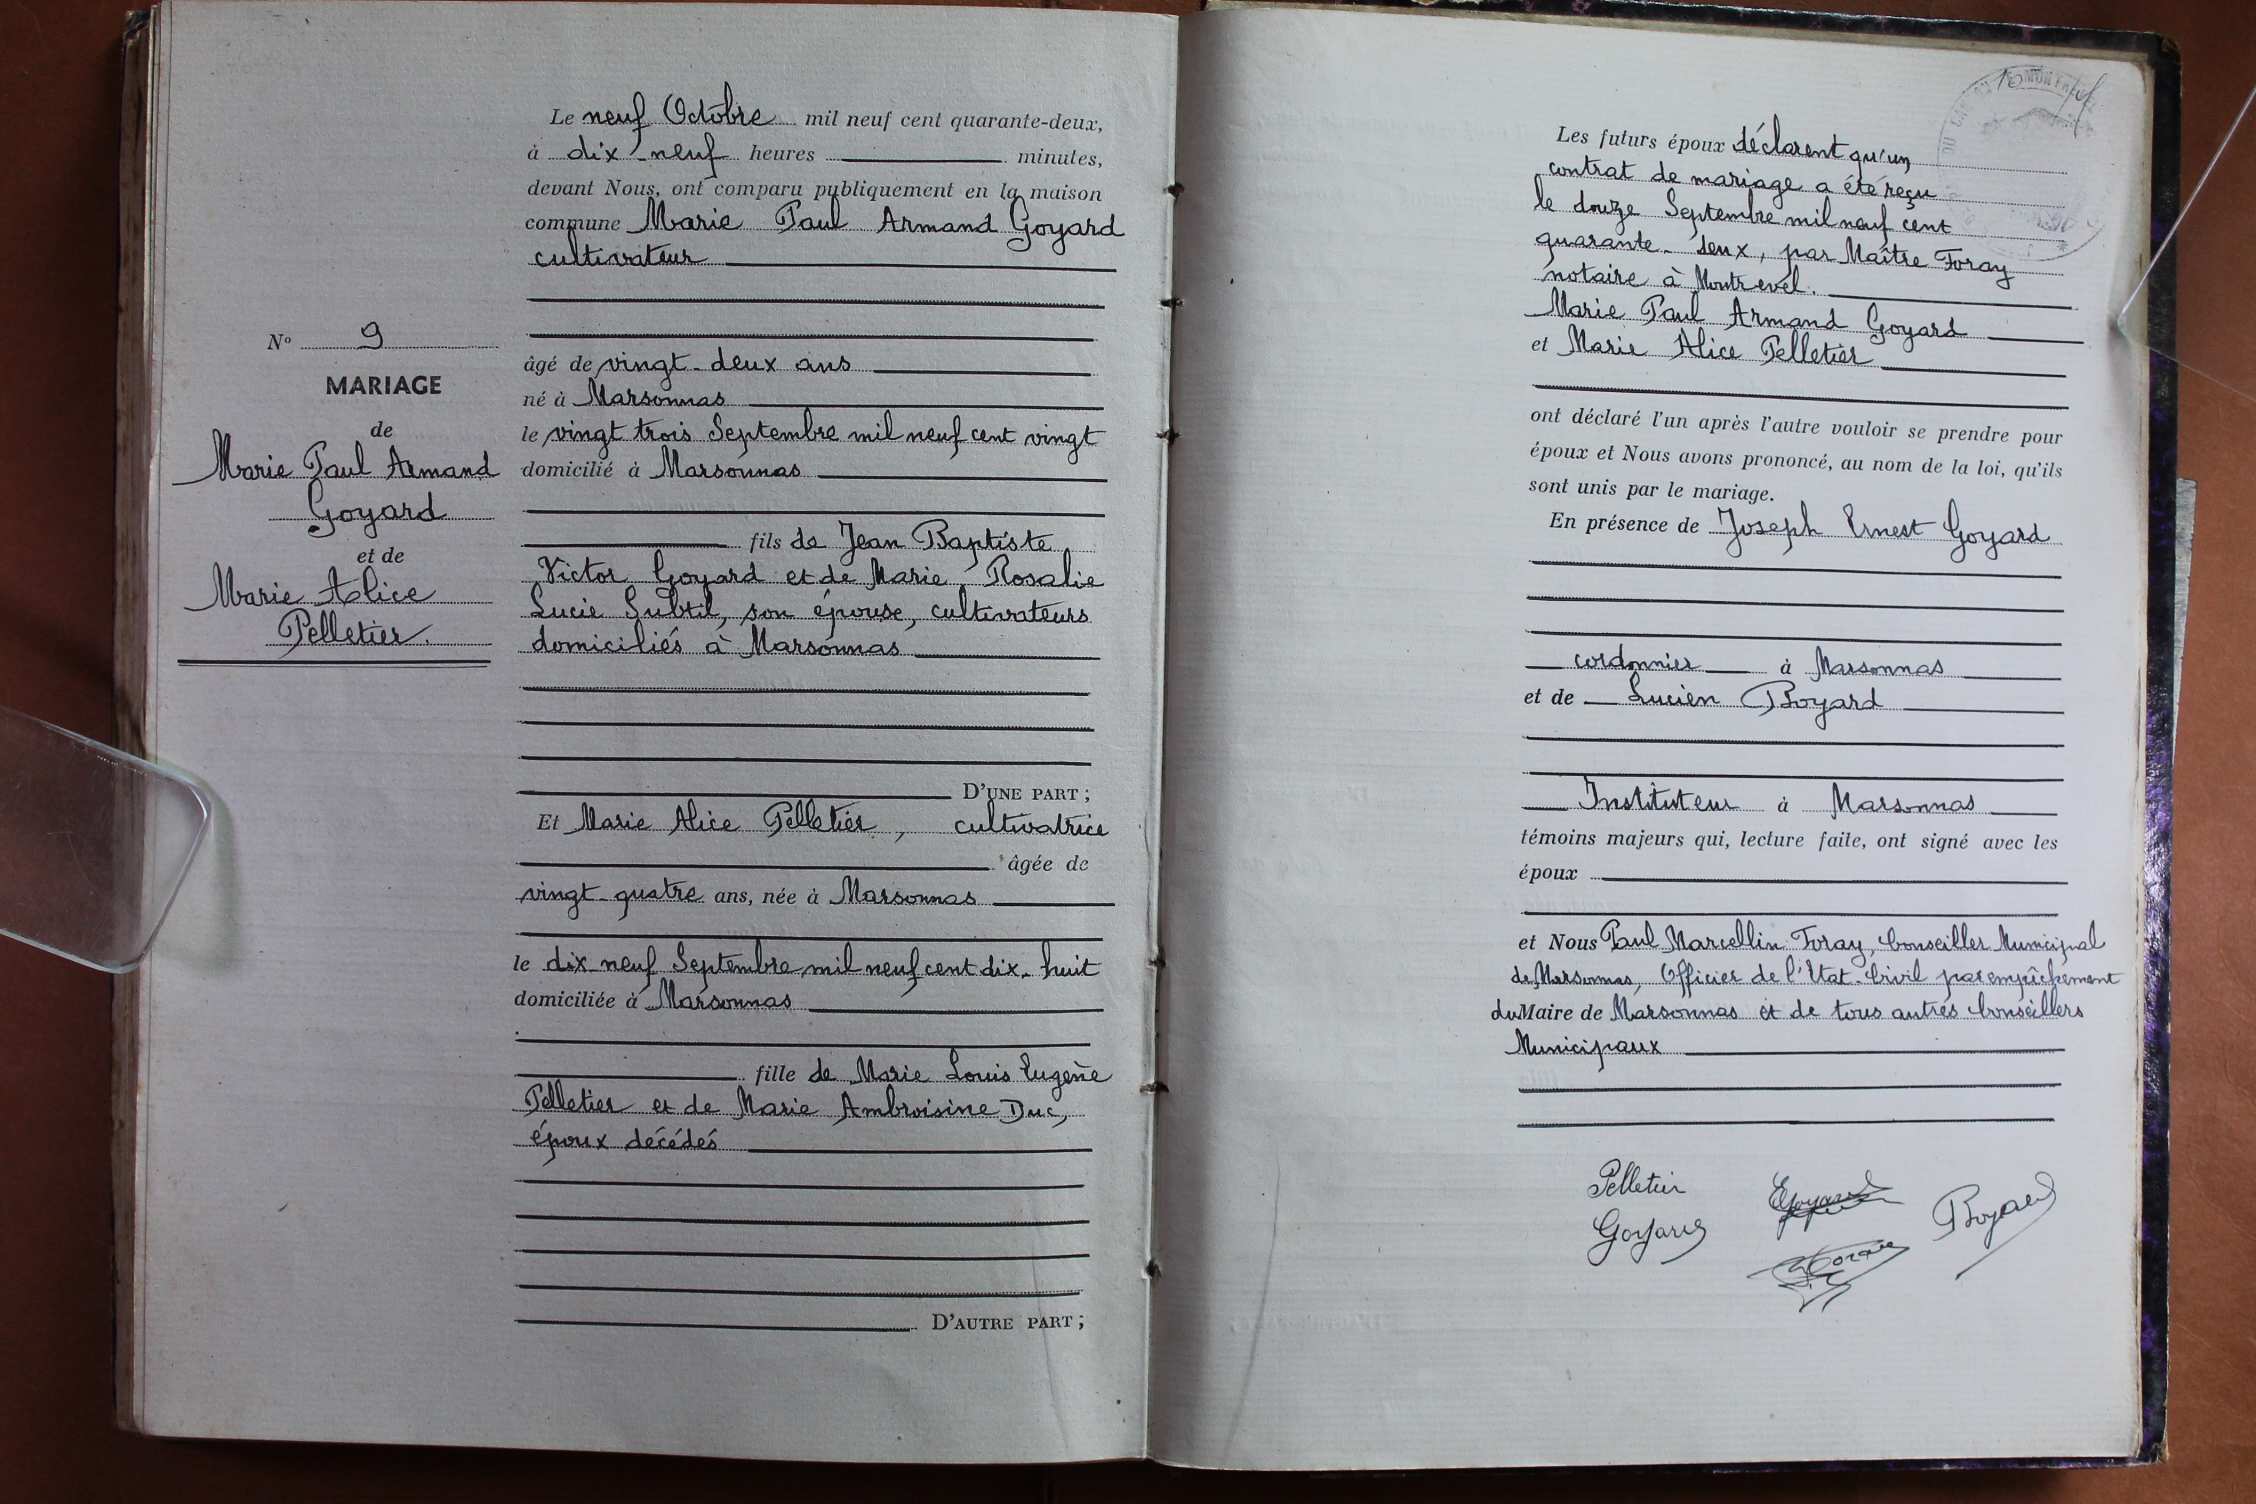 N° 9
MARIAGE
de
Marie Paul Armand
Goyard
et de
Marie Alice
Pelletier.
Le neuf Octobre mil neuf cent quarante-deux,
à dix-neuf heures minutes,
devant Nous, ont comparu publiquement en la maison
commune Marie Paul Armand Goyard
cultivateur
âgé de vingt-deux ans
né à Marsonnas
le vingt trois Septembre mil neuf cent vingt
domicilié à Marsonnas
fils de Jean Baptiste
Victor Goyard et de Marie Rosalie
Lucie Subtil, son épouse, cultivateurs
domiciliés à Marsonnas
D'UNE PART ;
Et Marie Alice Pelletier, cultivatrice
âgée de
vingt-quatre ans, née à Marsonnas
le dix-neuf Septembre mil neuf cent dix-huit
domiciliée à Marsonnas
fille de Marie Louis Eugène
Pelletier et de Marie Ambroisine Duc,
époux décédés
D'AUTRE PART ;
Les futurs époux déclarent qu'un
contrat de mariage a été reçu
le douze Septembre mil neuf cent
quarante-deux, par Maître Foray
notaire à Montrevel.
Marie Paul Armand Goyard
et Marie Alice Pelletier
ont déclaré l'un après l'autre vouloir se prendre pour
époux et Nous avons prononcé, au nom de la loi, qu'ils
sont unis par le mariage.
En présence de Joseph Ernest Goyard
cordonnier à Marsonnas
et de Lucien Boyard
Instituteur à Marsonnas
témoins majeurs qui, lecture faite, ont signé avec les
époux
et Nous Paul Marcellin Foray, Conseiller Municipal
de Marsonnas, Officier de l'Etat-Civil par empêchement
du Maire de Marsonnas et de tous autres Conseillers
Municipaux
Pelletier
EGoyard
Boyard
Goyard